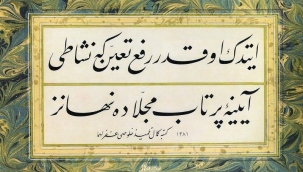 ایتدك او قدر رفع تعین كه نشاطی
آیینهٔ پر تاب مجلاده نهانز